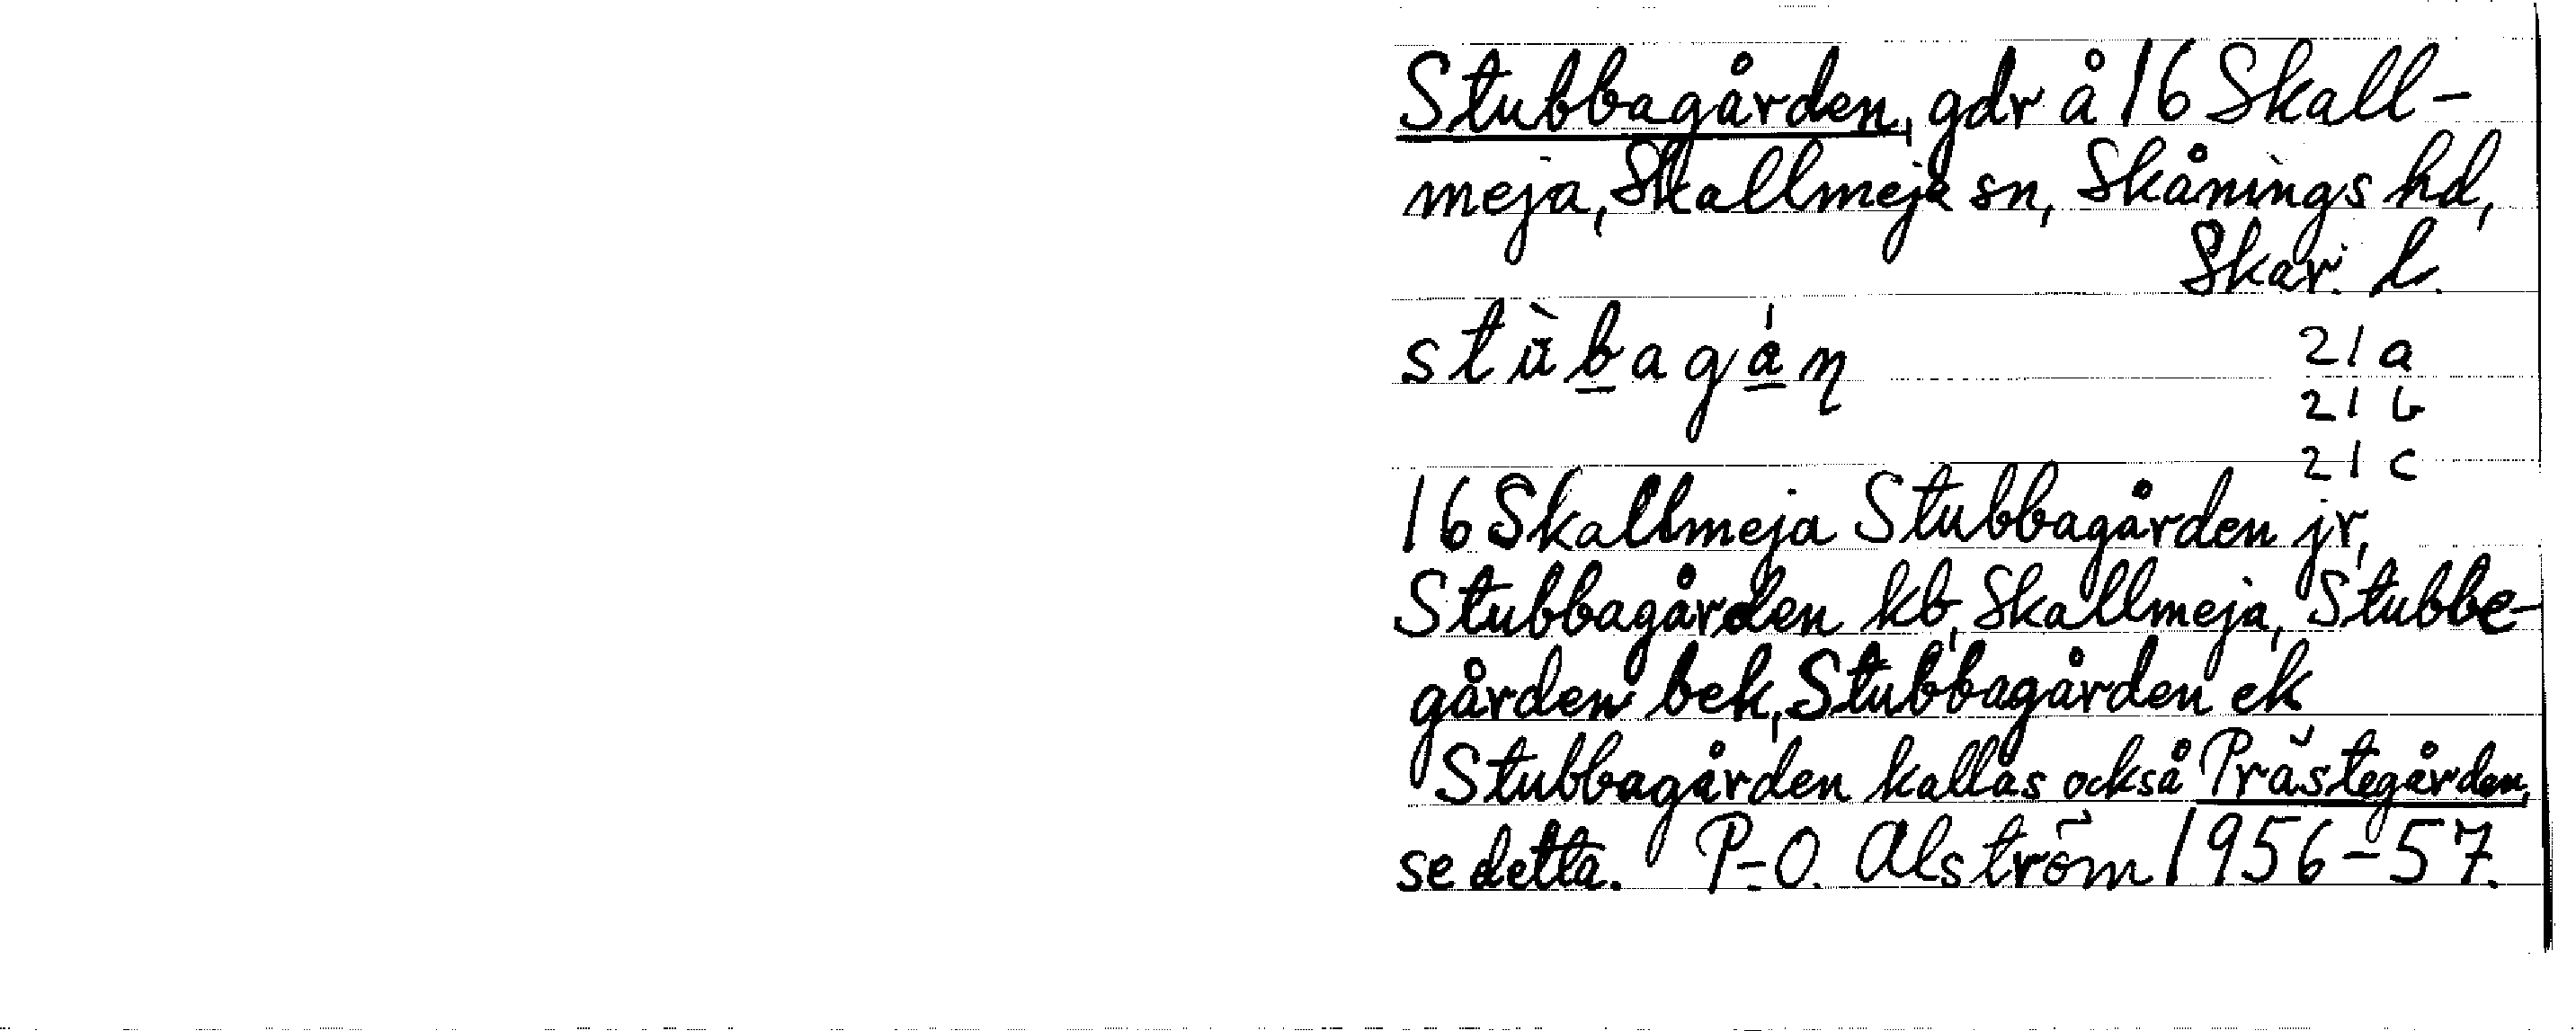 Stubbagården, gdr å 16 Skall-
meja, Skallmeja sn, Skånings hd,
Skar. l.
stùbagán 21a
21b
21c
16 Skallmeja Stubbagården jr,
Stubbagården kb, Skallmeja, Stubbe-
gården bek, Stubbagården ek
Stubbagården kallas också Prästegården,
se detta. P.-O. Alström 1956-57.